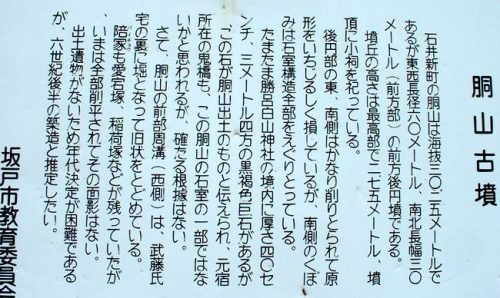 胴山古墳
石井新町の胴山は海抜三〇・二五メートルで
あるが東西長径六〇メートル、南北長幅三〇
メートル（前方部）の前方後円墳である。
墳丘の高さは最高部で二・七五メートル、墳
頂に小祠を祀っている。
後円部の東、南側はかなり削りとられて原
形をいちじるしく損しているが、南側のくぼ
みは石室構造全部をえぐりとっている。
たまたま勝呂白山神社の境内に厚さ四〇セ
ンチ、三メートル四方の黒褐色巨石があるが
この石が胴山出土のものと伝えられ、元宿
所在の鬼橋も、この胴山の石室の一部ではな
いかと思われるが、確たる根拠はない。
さて、胴山の前部周溝（西側）は、武藤氏
宅の裏に堀となって旧状をとどめている。
陪冢も愛宕塚、稲荷塚などが残っていたが
いまは全部削平されてその面影はない。
出土遺物がないため年代決定が困難である
が、六世紀後半の築造と推定したい。
坂戸市教育委員会